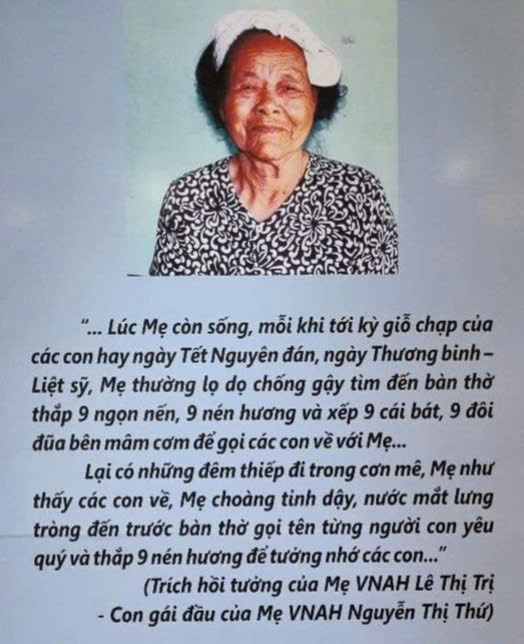 "... Lúc Mẹ còn sống, mỗi khi tới kỳ giỗ chạp của
các con hay ngày Tết Nguyên đán, ngày Thương binh –
Liệt sỹ, Mẹ thường lọ dọ chống gậy tìm đến bàn thờ
thắp 9 ngọn nến, 9 nén hương và xếp 9 cái bát, 9 đôi
đũa bên mâm cơm để gọi các con về với Mẹ...
Lại có những đêm thiếp đi trong cơn mê, Mẹ như
thấy các con về, Mẹ choàng tỉnh dậy, nước mắt lưng
tròng đến trước bàn thờ gọi tên từng người con yêu
quý và thắp 9 nén hương để tưởng nhớ các con..."
(Trích hồi tưởng của Mẹ VNAH Lê Thị Trị
- Con gái đầu của Mẹ VNAH Nguyễn Thị Thứ)